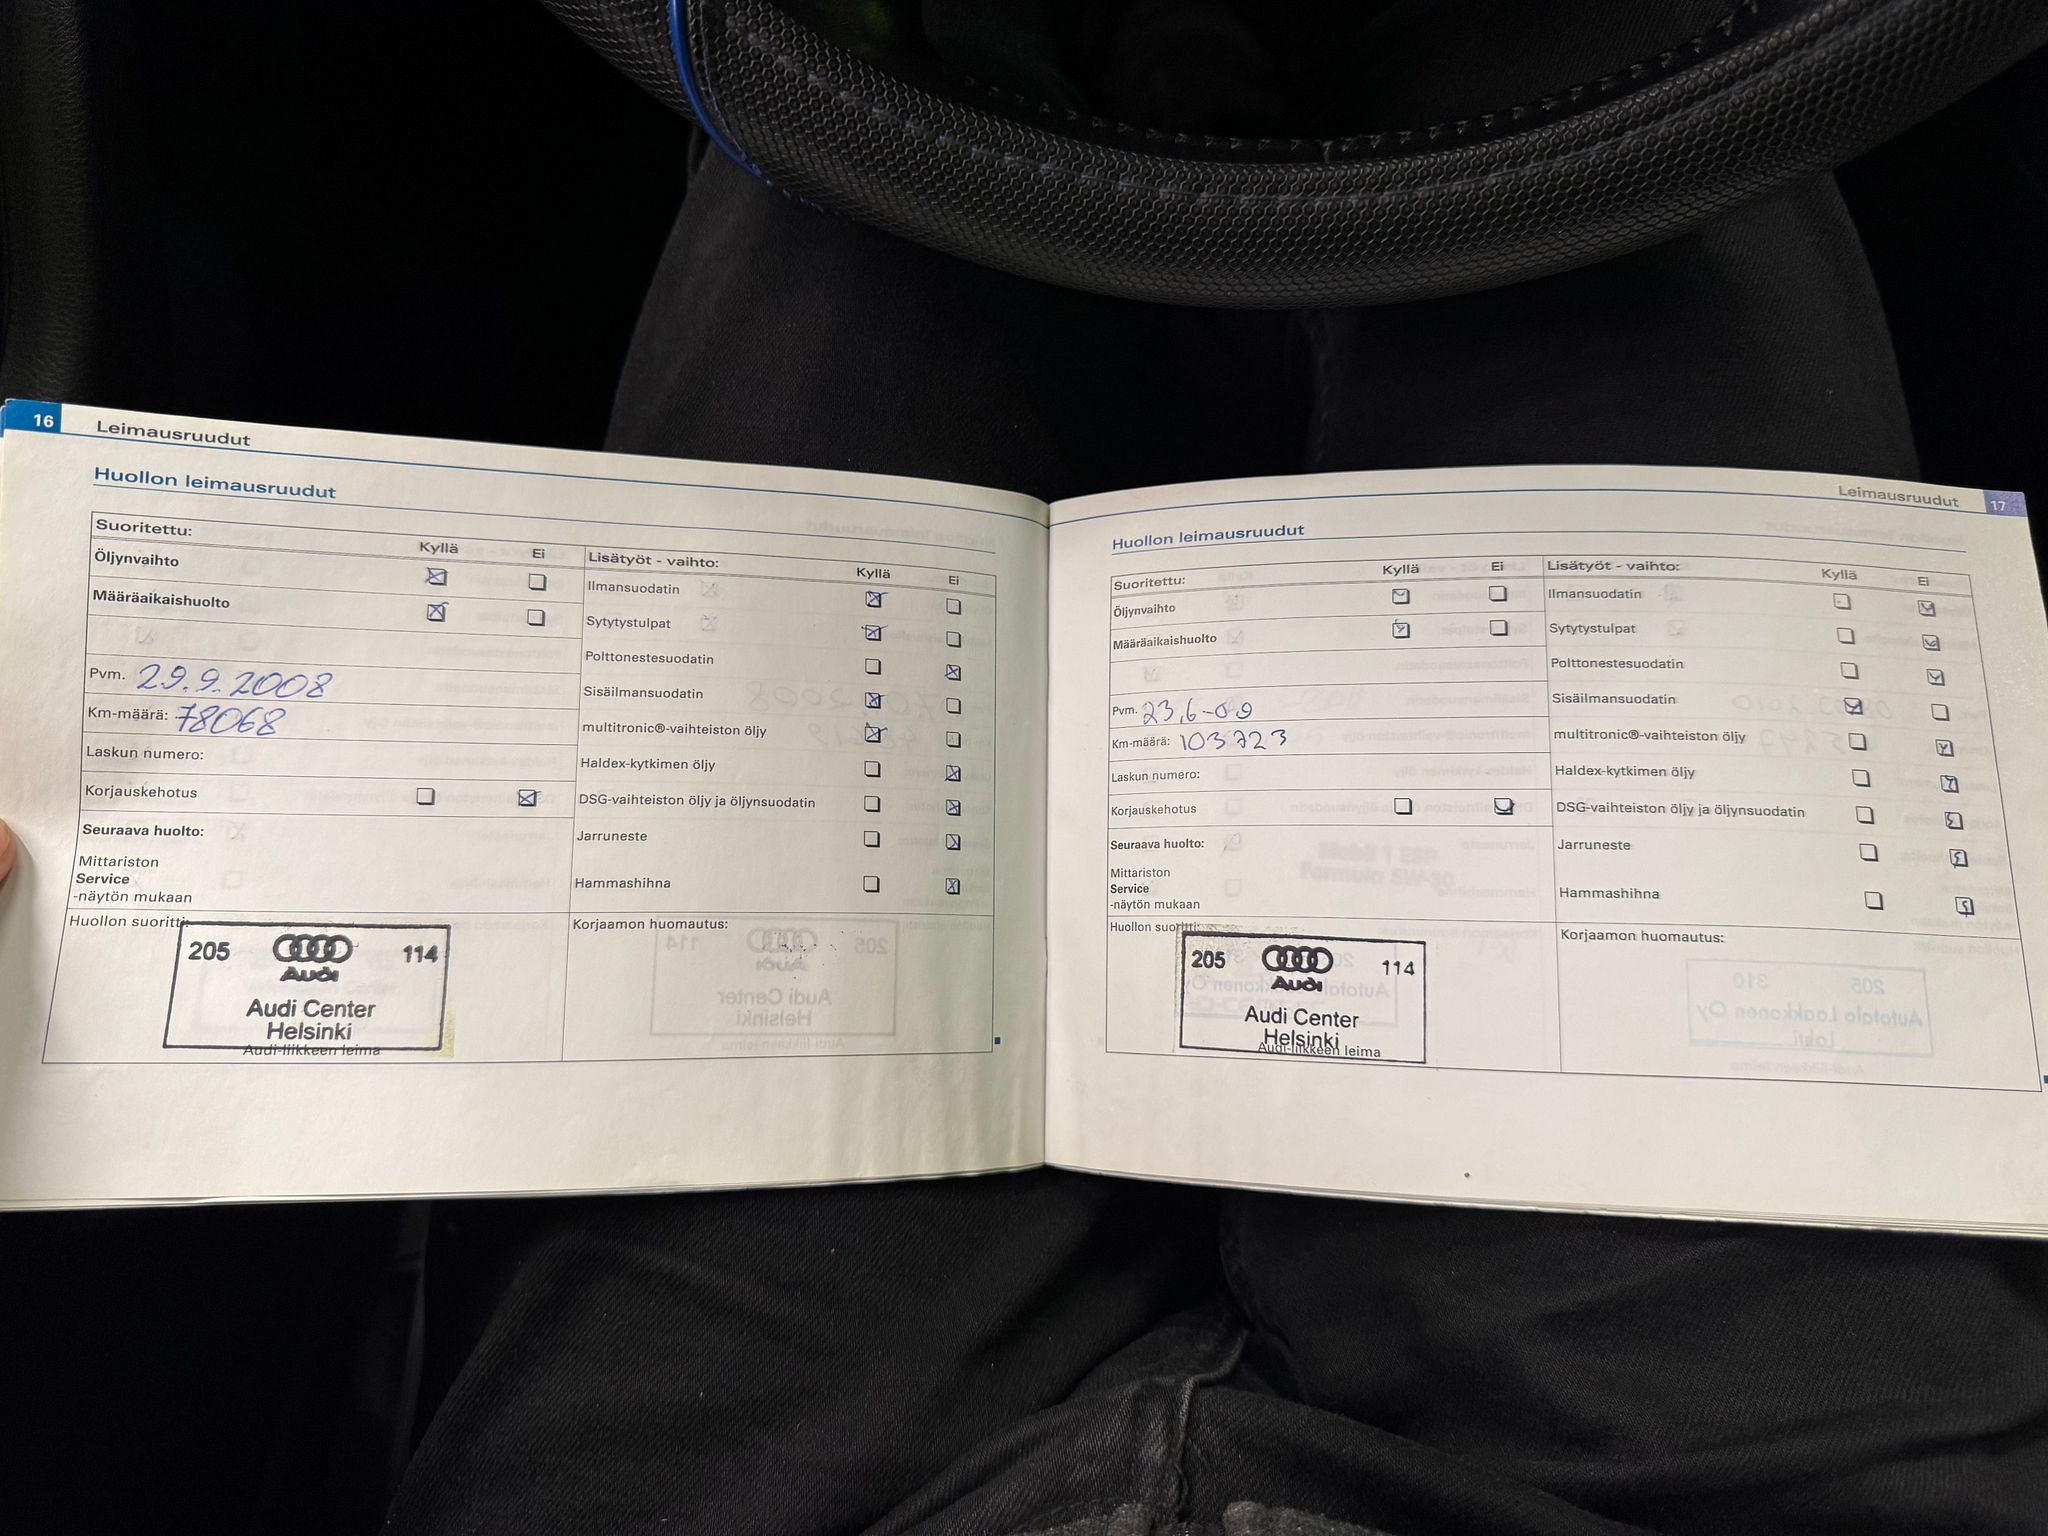 16 Leimausruudut
Huollon leimausruudut
Suoritettu:
Kyllä Ei
Öljynvaihto
Määräaikaishuolto
Pvm. 29.9.2008
Km-määrä: 78068
Laskun numero:
Korjauskehotus
Seuraava huolto:
Mittariston
Service
-näytön mukaan
Huollon suoritti:
205 114
Audi
Audi Center
Helsinki
Audi-liikkeen leima
Lisätyöt - vaihto:
Kyllä Ei
Ilmansuodatin
Sytytystulpat
Polttonestesuodatin
Sisäilmansuodatin
multitronic®-vaihteiston öljy
Haldex-kytkimen öljy
DSG-vaihteiston öljy ja öljynsuodatin
Jarruneste
Hammashihna
Korjaamon huomautus:
Leimausruudut 17
Huollon leimausruudut
Suoritettu:
Kyllä Ei
Öljynvaihto
Määräaikaishuolto
Pvm. 23.6-09
Km-määrä: 103723
Laskun numero:
Korjauskehotus
Seuraava huolto:
Mittariston
Service
-näytön mukaan
Huollon suoritti:
205 114
Audi
Audi Center
Helsinki
Audi-liikkeen leima
Lisätyöt - vaihto:
Kyllä Ei
Ilmansuodatin
Sytytystulpat
Polttonestesuodatin
Sisäilmansuodatin
multitronic®-vaihteiston öljy
Haldex-kytkimen öljy
DSG-vaihteiston öljy ja öljynsuodatin
Jarruneste
Hammashihna
Korjaamon huomautus: